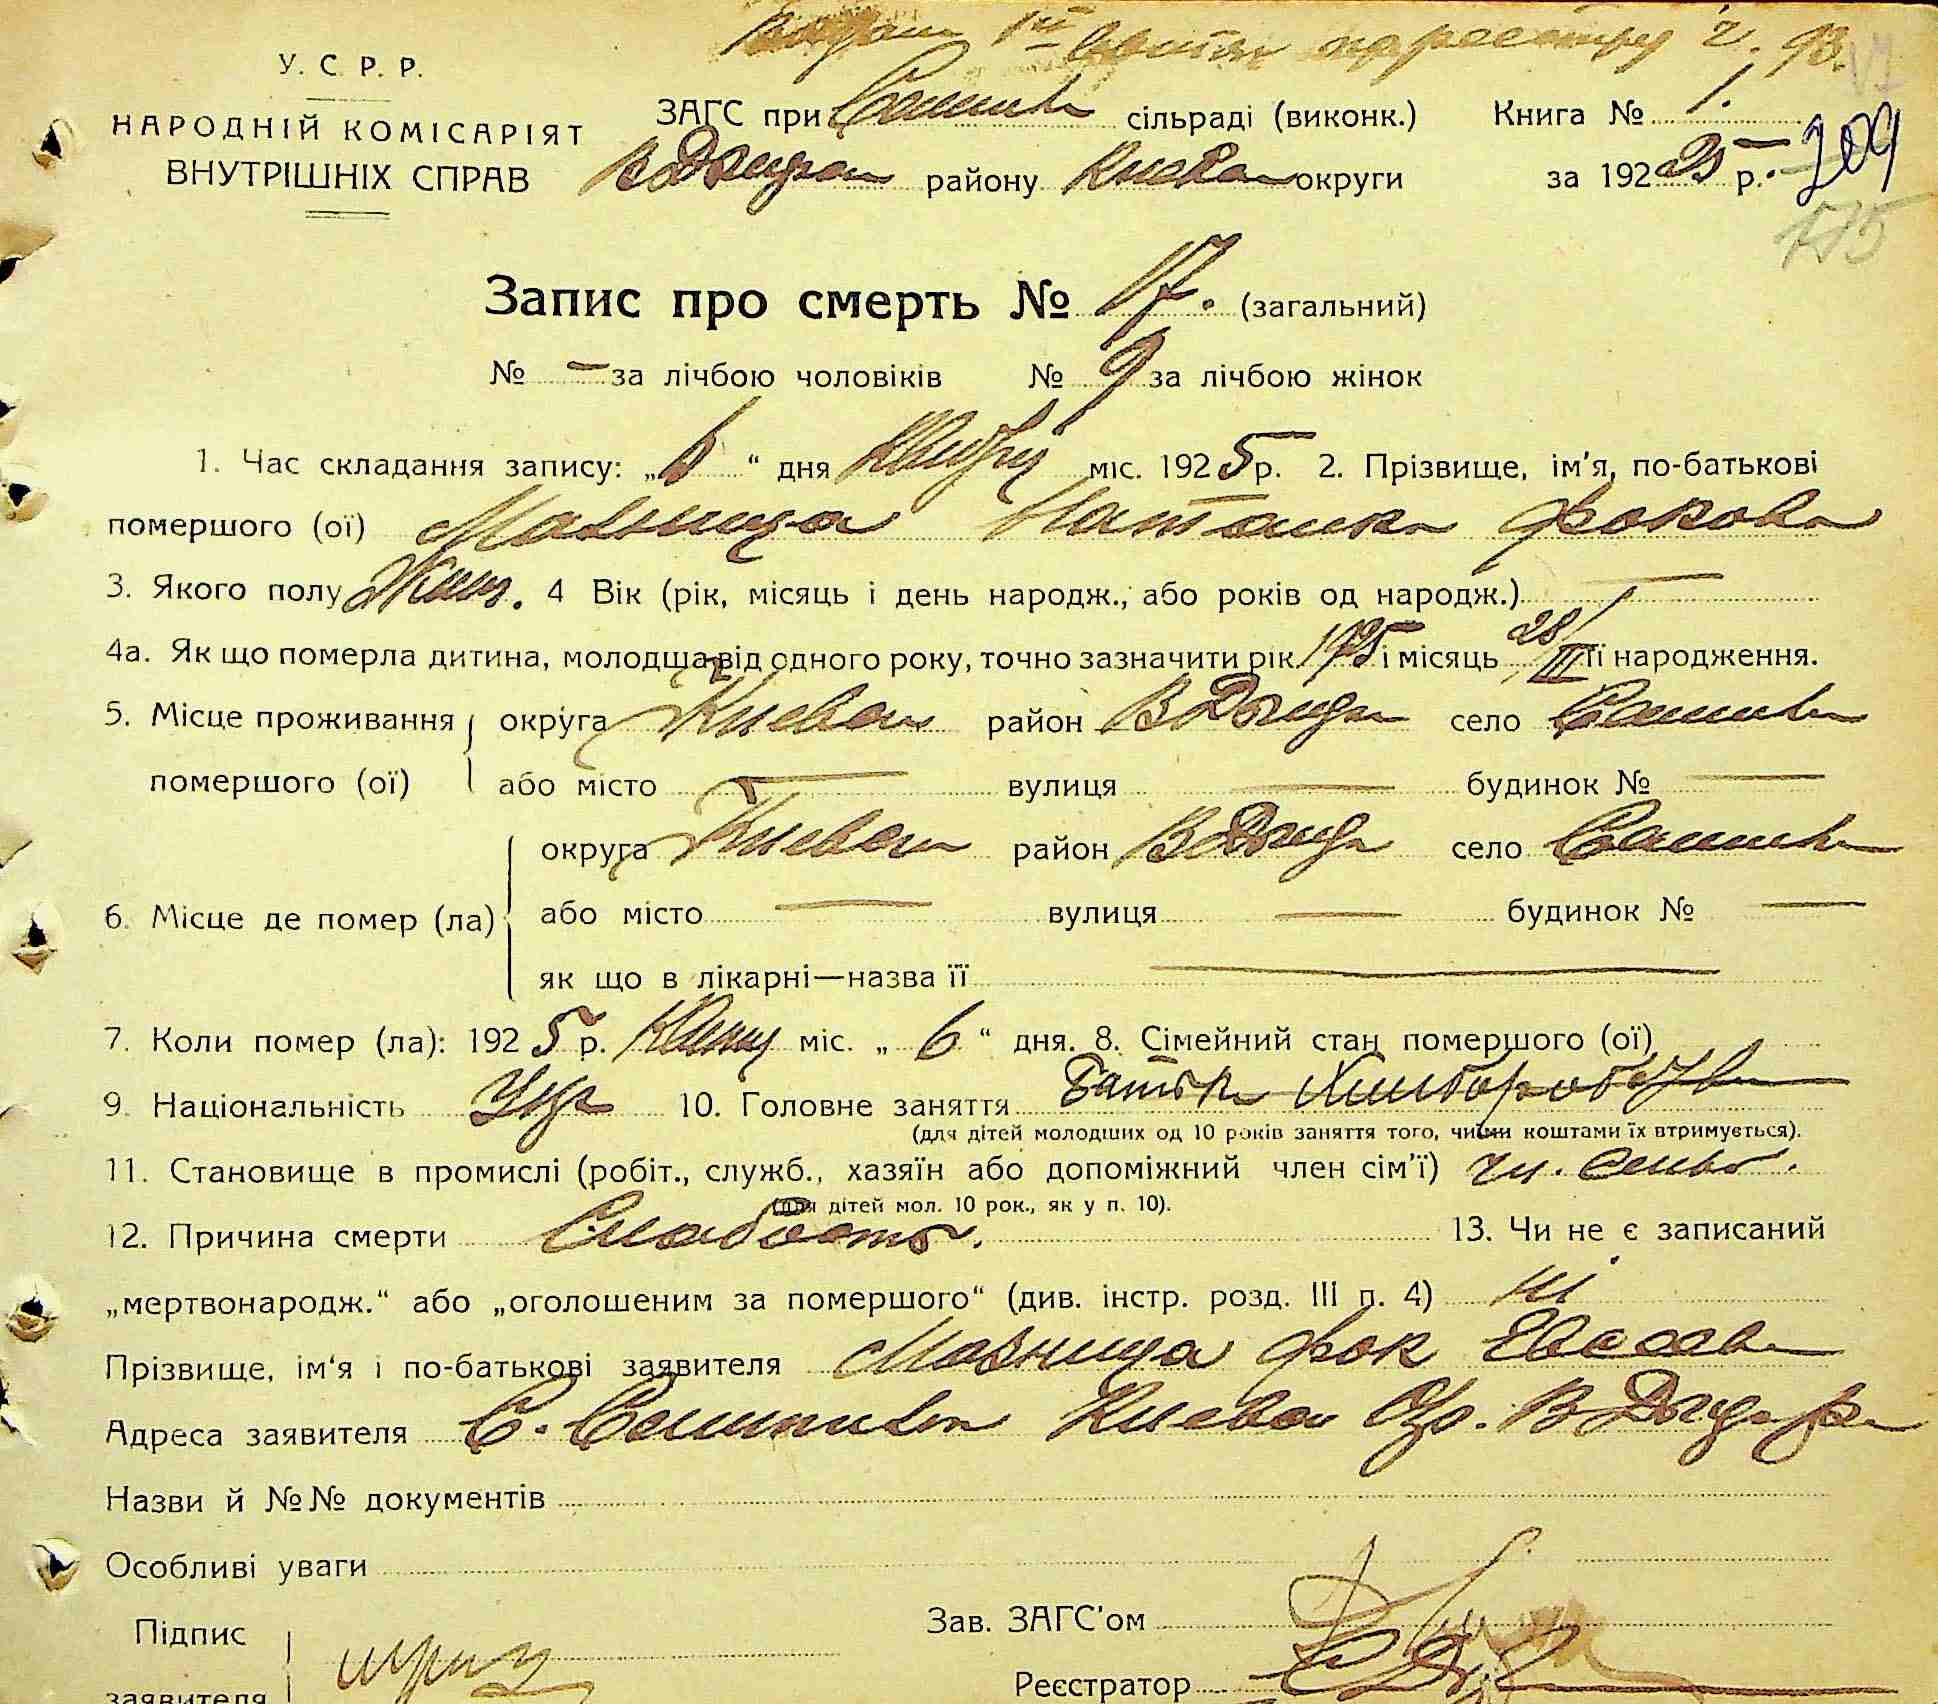 У. С. Р. Р.
НАРОДНІЙ КОМІСАРІЯТ
ВНУТРІШНІХ СПРАВ
ЗАГС при сільраді (виконк.) Книга № 1.
району Киевск округи за 1925 р. 209
175
Запис про смерть № 17. (загальний)
№ — за лічбою чоловіків № 9 за лічбою жінок
1. Час складання запису: „6 “ дня міс. 1925 р. 2. Прізвище, ім'я, по-батькові
помершого (ої) Мазница Наталка Фокова
3. Якого полу Жин. 4 Вік (рік, місяць і день народж., або років од народж.) —
4а. Як що померла дитина, молодща від одного року, точно зазначити рік 1925 і місяць 28/III її народження.
5. Місце проживання округа Киевск район село
помершого (ої) або місто — вулиця — будинок № —
округа Киевск район село
6. Місце де помер (ла) або місто — вулиця — будинок № —
як що в лікарні—назва її —
7. Коли помер (ла): 1925 р. міс. „ 6 “ дня. 8. Сімейний стан помершого (ої)
9. Національність Укр 10. Головне заняття Батьки Хлибороб
(для дітей молодших од 10 років заняття того, чиїми коштами їх втримується).
11. Становище в промислі (робіт., служб., хазяїн або допоміжний член сім'ї) чл. семьи.
(для дітей мол. 10 рок., як у п. 10).
12. Причина смерти Слабость. 13. Чи не є записаний
„мертвонародж.“ або „оголошеним за помершого“ (див. інстр. розд. III п. 4) ні
Прізвище, ім'я і по-батькові заявителя Мазница Фок
Адреса заявителя С. Киевск Окр.
Назви й №№ документів
Особливі уваги
Підпис
заявителя
Зав. ЗАГС'ом
Реєстратор